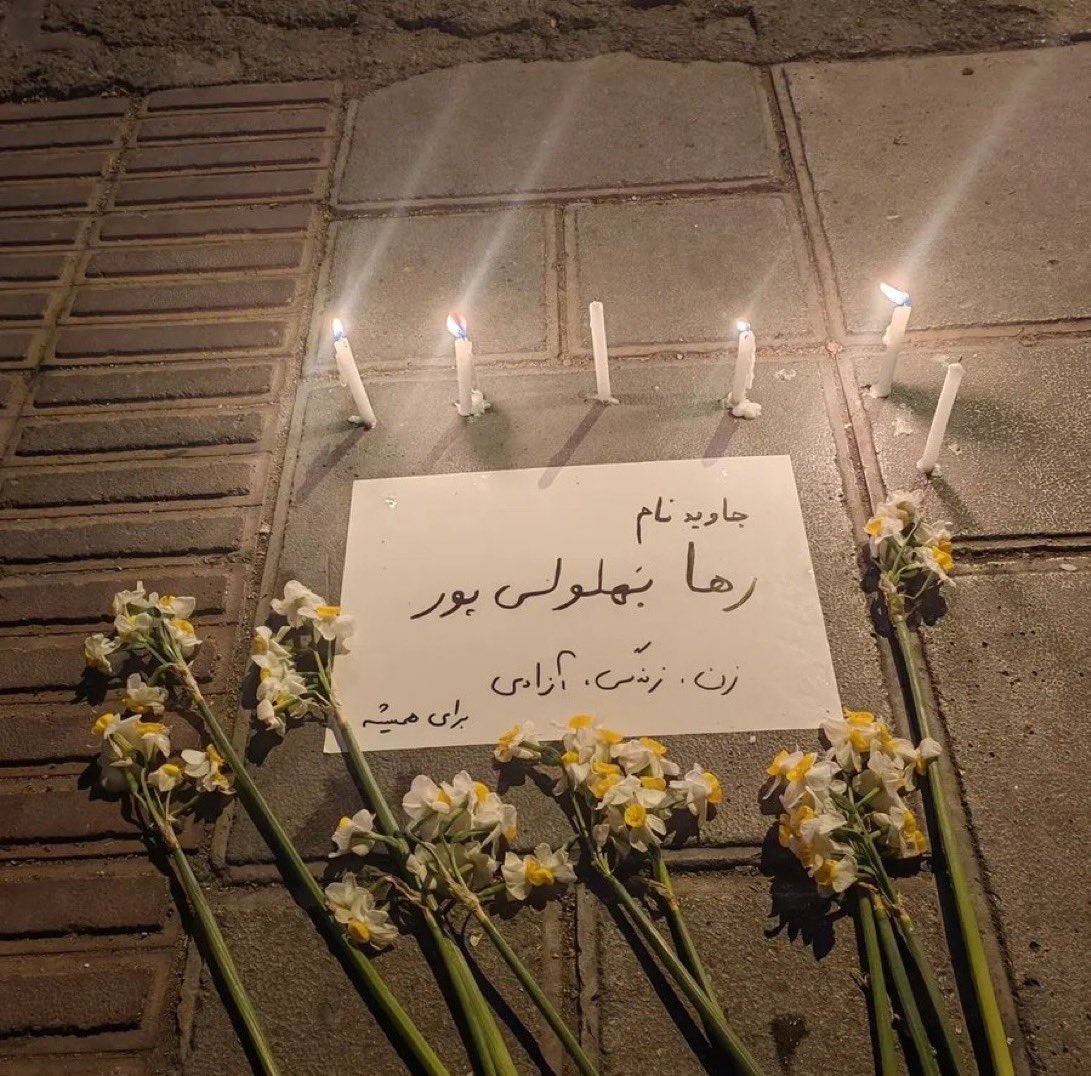 جاوید نام
رها بهلولی پور
زن، زندگی، آزادی
برای همیشه